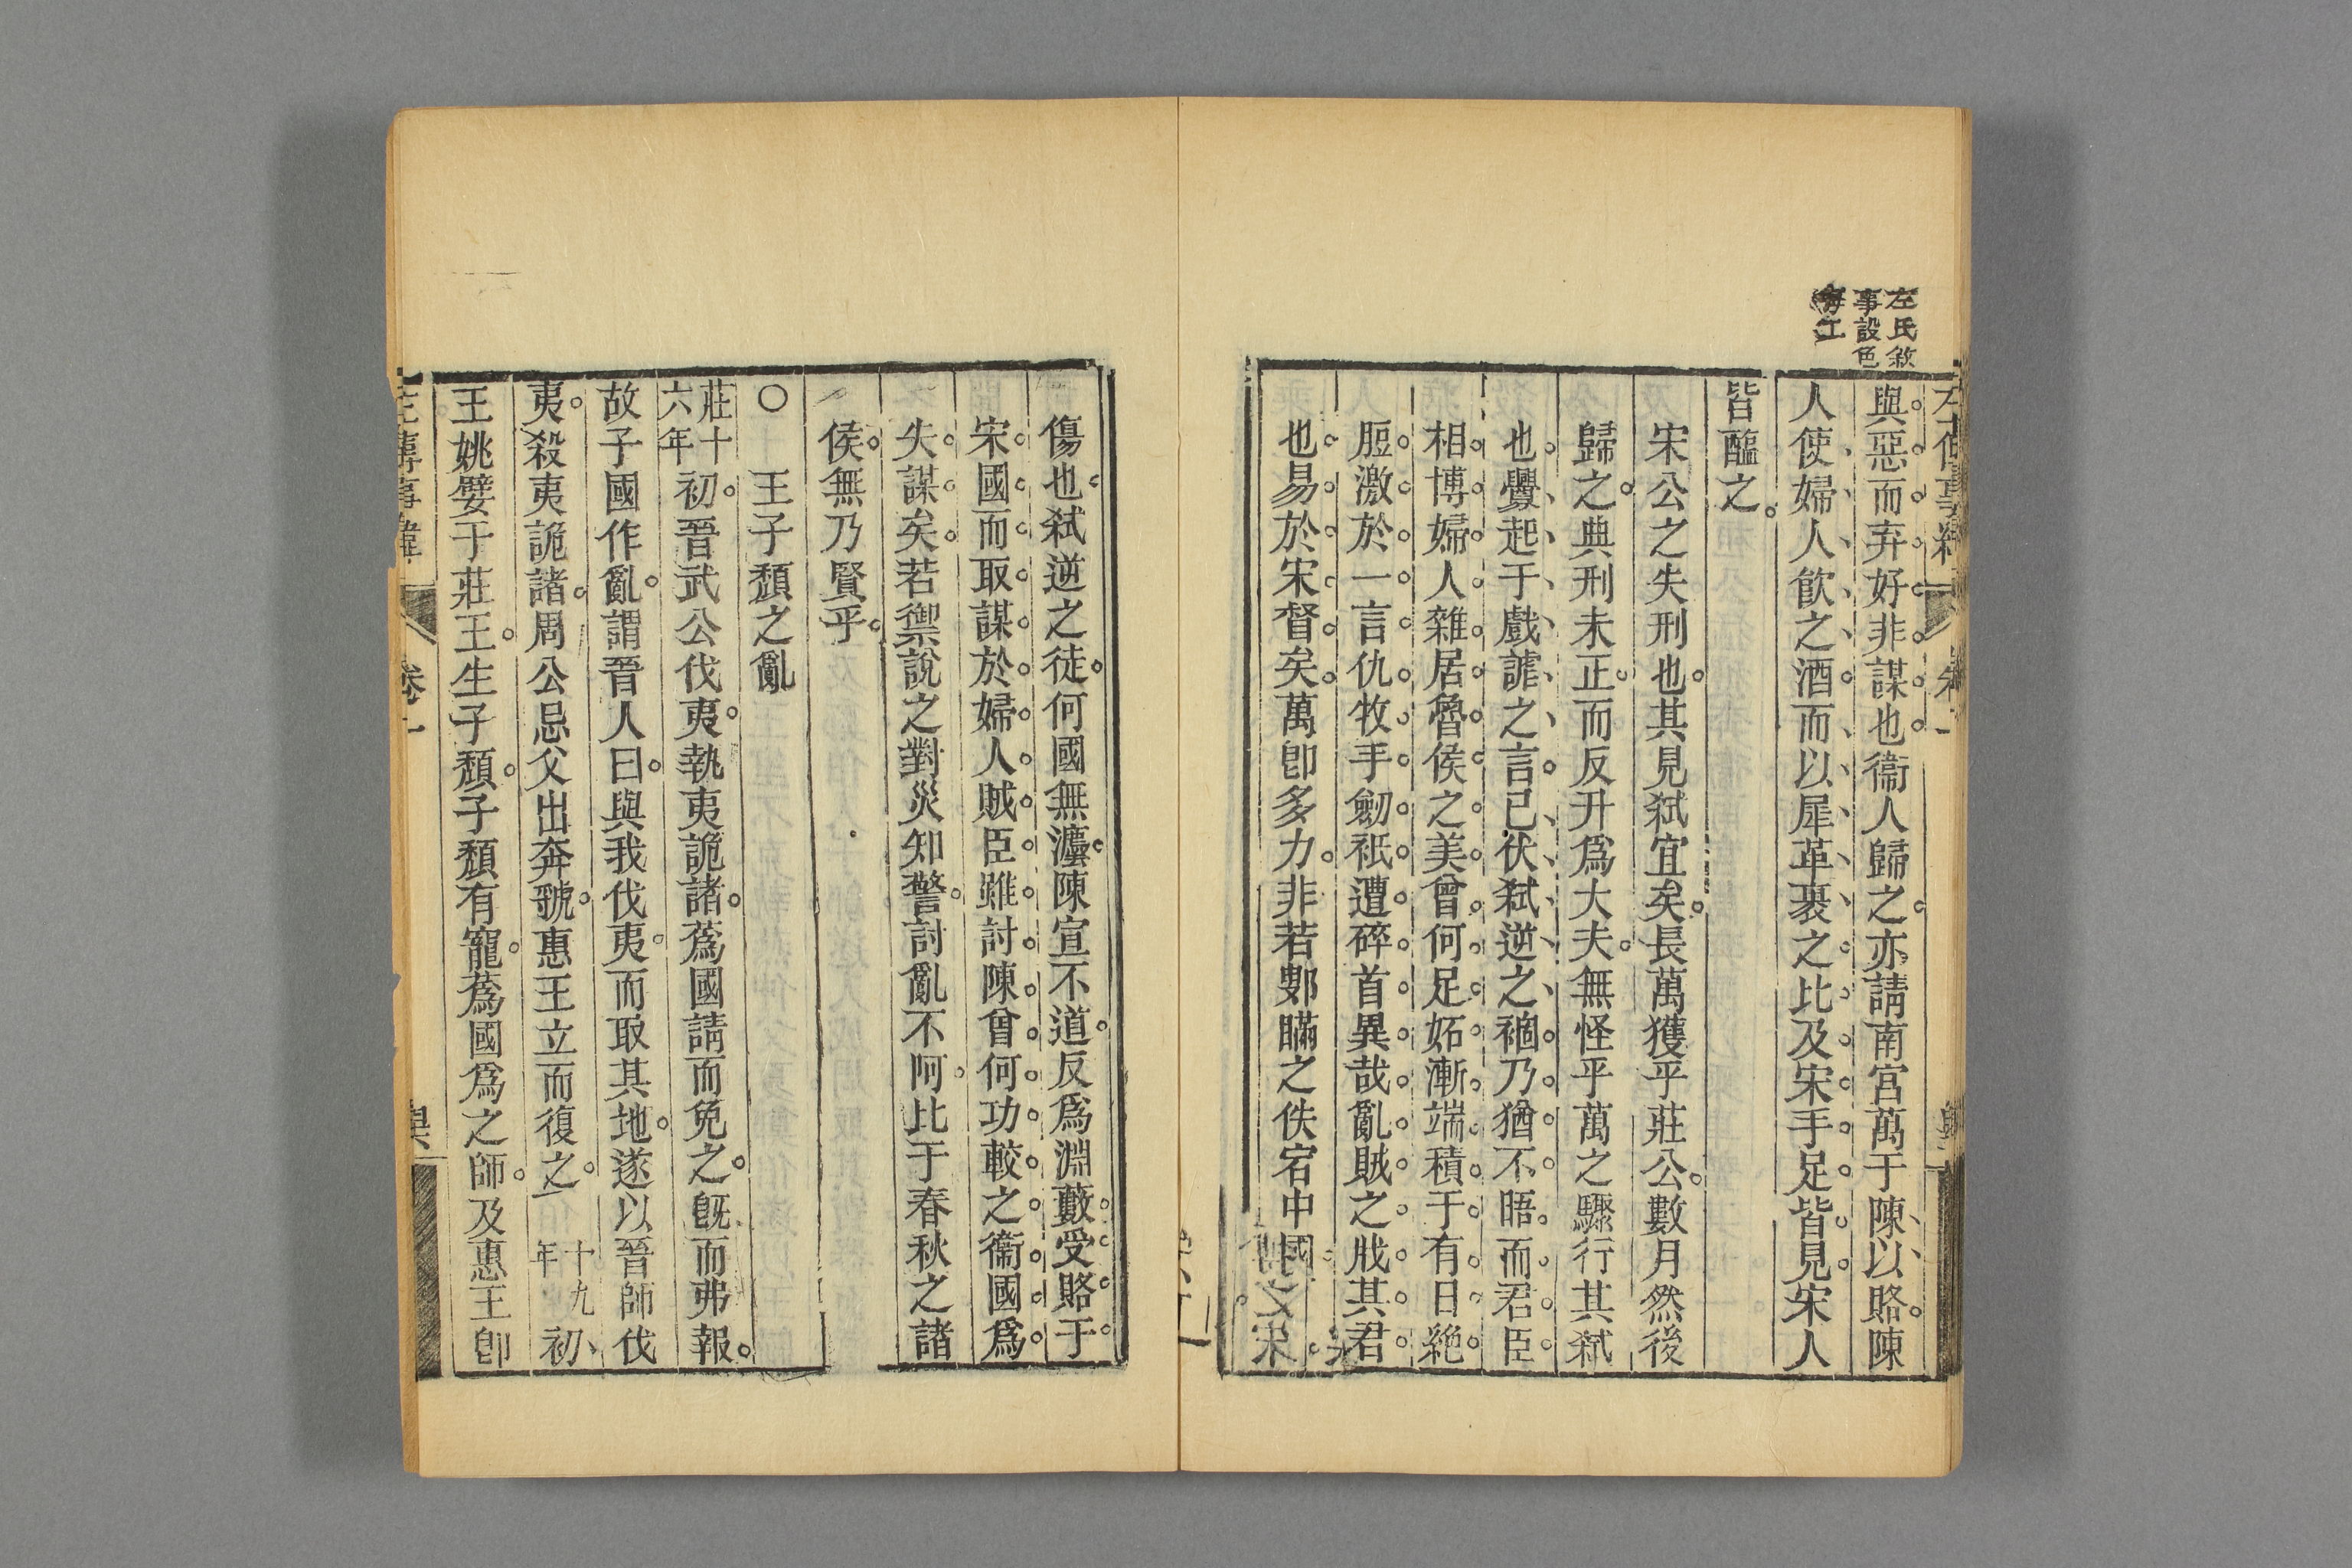 左氏敘
事設色
每工
與惡而弃好非謀也衞人歸之亦請南宮萬于陳以賂陳
人使婦人飮之酒而以犀革裹之比及宋手足皆見宋人
皆醢之
宋公之失刑也其見弑宜矣長萬獲乎莊公數月然後
歸之典刑未正而反升爲大夫無怪乎萬之驟行其弑
也釁起于戲謔之言已伏弑逆之禍乃猶不晤而君臣
相博婦人雜居魯侯之美曾何足妬漸端積于有日絶
脰激於一言仇牧手劒祇遭碎首異哉亂賊之戕其君
也易於宋督矣萬卽多力非若鄋瞞之佚宕中國宋
傷也弑逆之徒何國無灋陳宣不道反爲淵藪受賂于
宋國而取謀於婦人賊臣雖討陳曾何功較之衞國爲
失謀矣若禦說之對災知警討亂不阿比于春秋之諸
侯無乃賢乎
○王子頹之亂
莊十六年初晉武公伐夷執夷詭諸蔿國請而免之旣而弗報
故子國作亂謂晉人曰與我伐夷而取其地遂以晉師伐
夷殺夷詭諸周公忌父出奔虢惠王立而復之十九年初
王姚嬖于莊王生子頹子頹有寵蔿國爲之師及惠王卽
左傳事緯
卷一